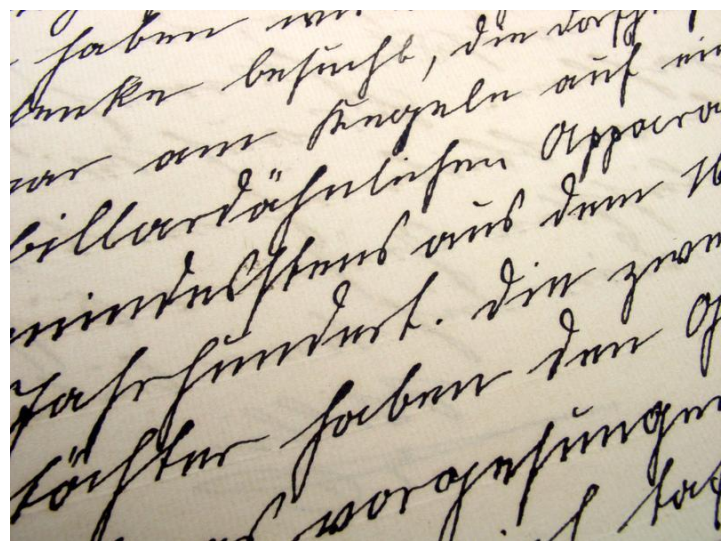 haben
besucht, die
war am Kegeln auf ein
billardähnlichen Appara
mindestens aus dem 16
Jahrhundert. Die zwe
töchter haben den G
vorgesungen